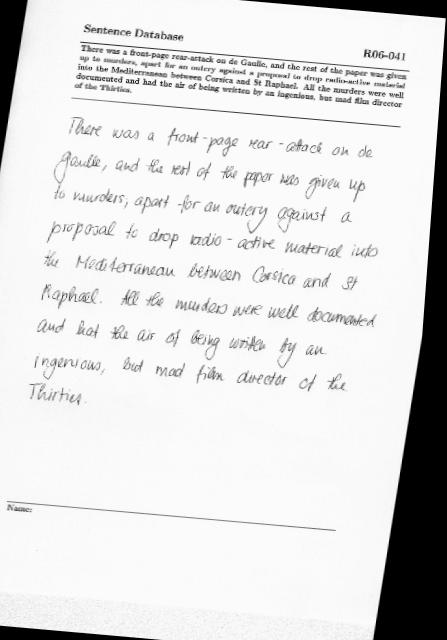 Sentence Database
R06-041
There was a front-page rear-attack on de Gaulle, and the rest of the paper was given
up to murders, apart for an outcry against a proposal to drop radio-active material
into the Mediterranean between Corsica and St Raphael. All the murders were well
documented and had the air of being written by an ingenious, but mad film director
of the Thirties.
There was a front-page rear-attack on de
Gaulle, and the rest of the paper was given up
to murders, apart for an outcry against a
proposal to drop radio-active material into
the Mediterranean between Corsica and St
Raphael. All the murders were well documented
and hat the air of being written by an
ingenious, but mad film director of the
Thirties.
Name: